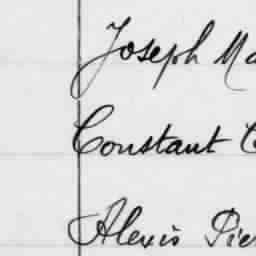 Joseph Ma
Constant C
Alexis Pier